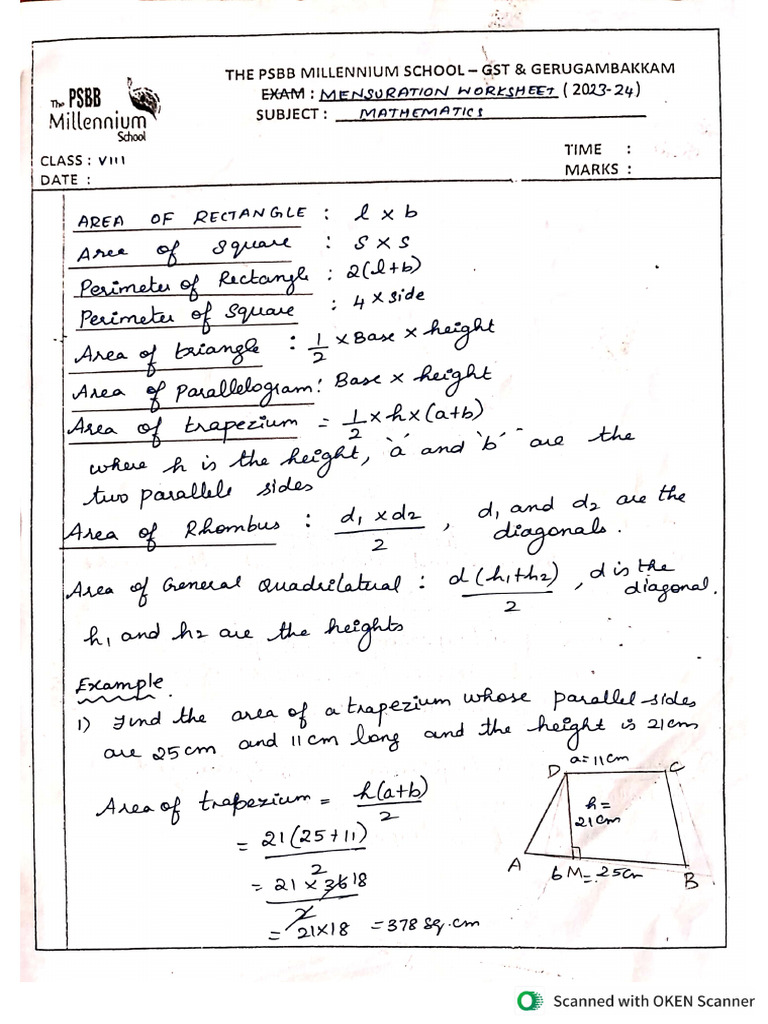 THE PSBB MILLENNIUM SCHOOL – GST & GERUGAMBAKKAM
The PSBB
Millennium
School
EXAM : MENSURATION WORKSHEET (2023-24)
SUBJECT : MATHEMATICS
CLASS : VIII
TIME :
DATE :
MARKS :
AREA OF RECTANGLE : l x b
Area of Square : S x S
Perimeter of Rectangle : 2(l+b)
Perimeter of Square : 4 x side
Area of triangle : 1/2 x Base x height
Area of Parallelogram : Base x height
Area of trapezium = 1/2 x h x (a+b)
where h is the height, 'a' and 'b' are the
two parallele sides
Area of Rhombus : d1 x d2 / 2 , d1 and d2 are the
diagonals.
Area of General Quadrilatual : d(h1+h2) / 2 , d is the
diagonal.
h1 and h2 are the heights
Example.
1) Find the area of a trapezium whose parallel sides
are 25cm and 11cm long and the height is 21cm
Area of trapezium = h(a+b) / 2
= 21(25+11) / 2
= 21 x 36 18 / 2
= 21x18 = 378 Sq.cm
D a=11cm C
h=
21cm
A b M=25cm B
Scanned with OKEN Scanner